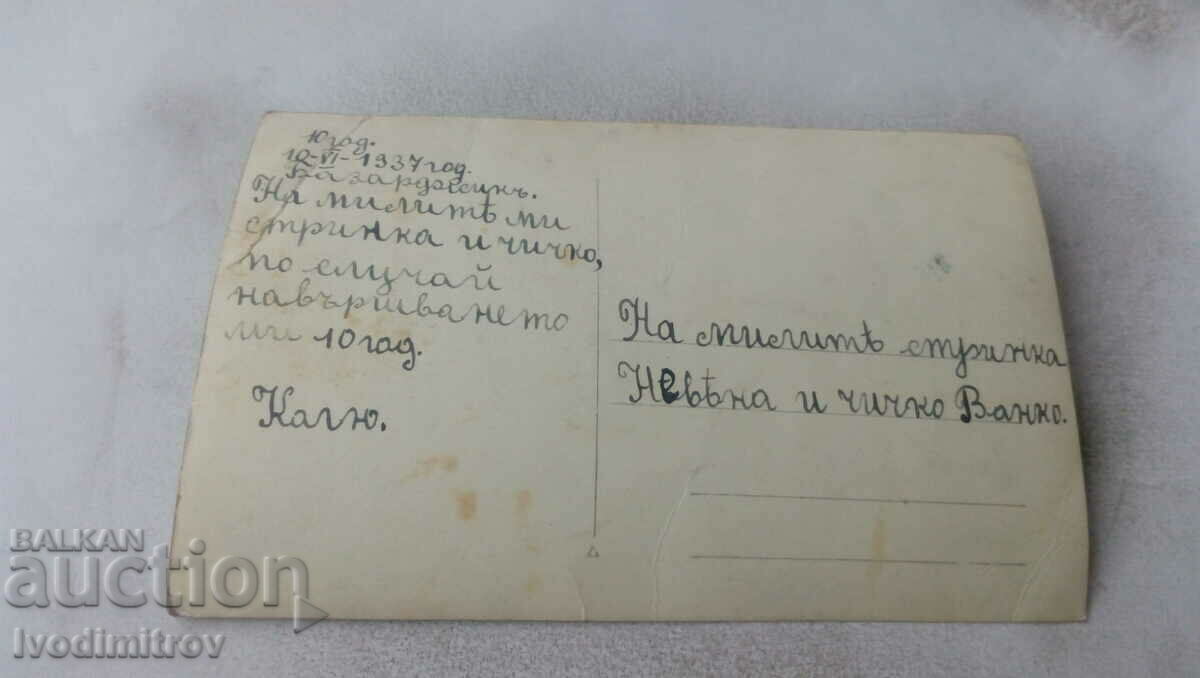 10 год.
10-VI-1937 год.
Базарджикъ.
На милитѣ ми
стринка и чичко,
по случай
навършването
ми 10 год.
Кагю.
На милитѣ стринка
Невѣна и чичко Ванко.
BALKAN
auction
Ivodimitrov